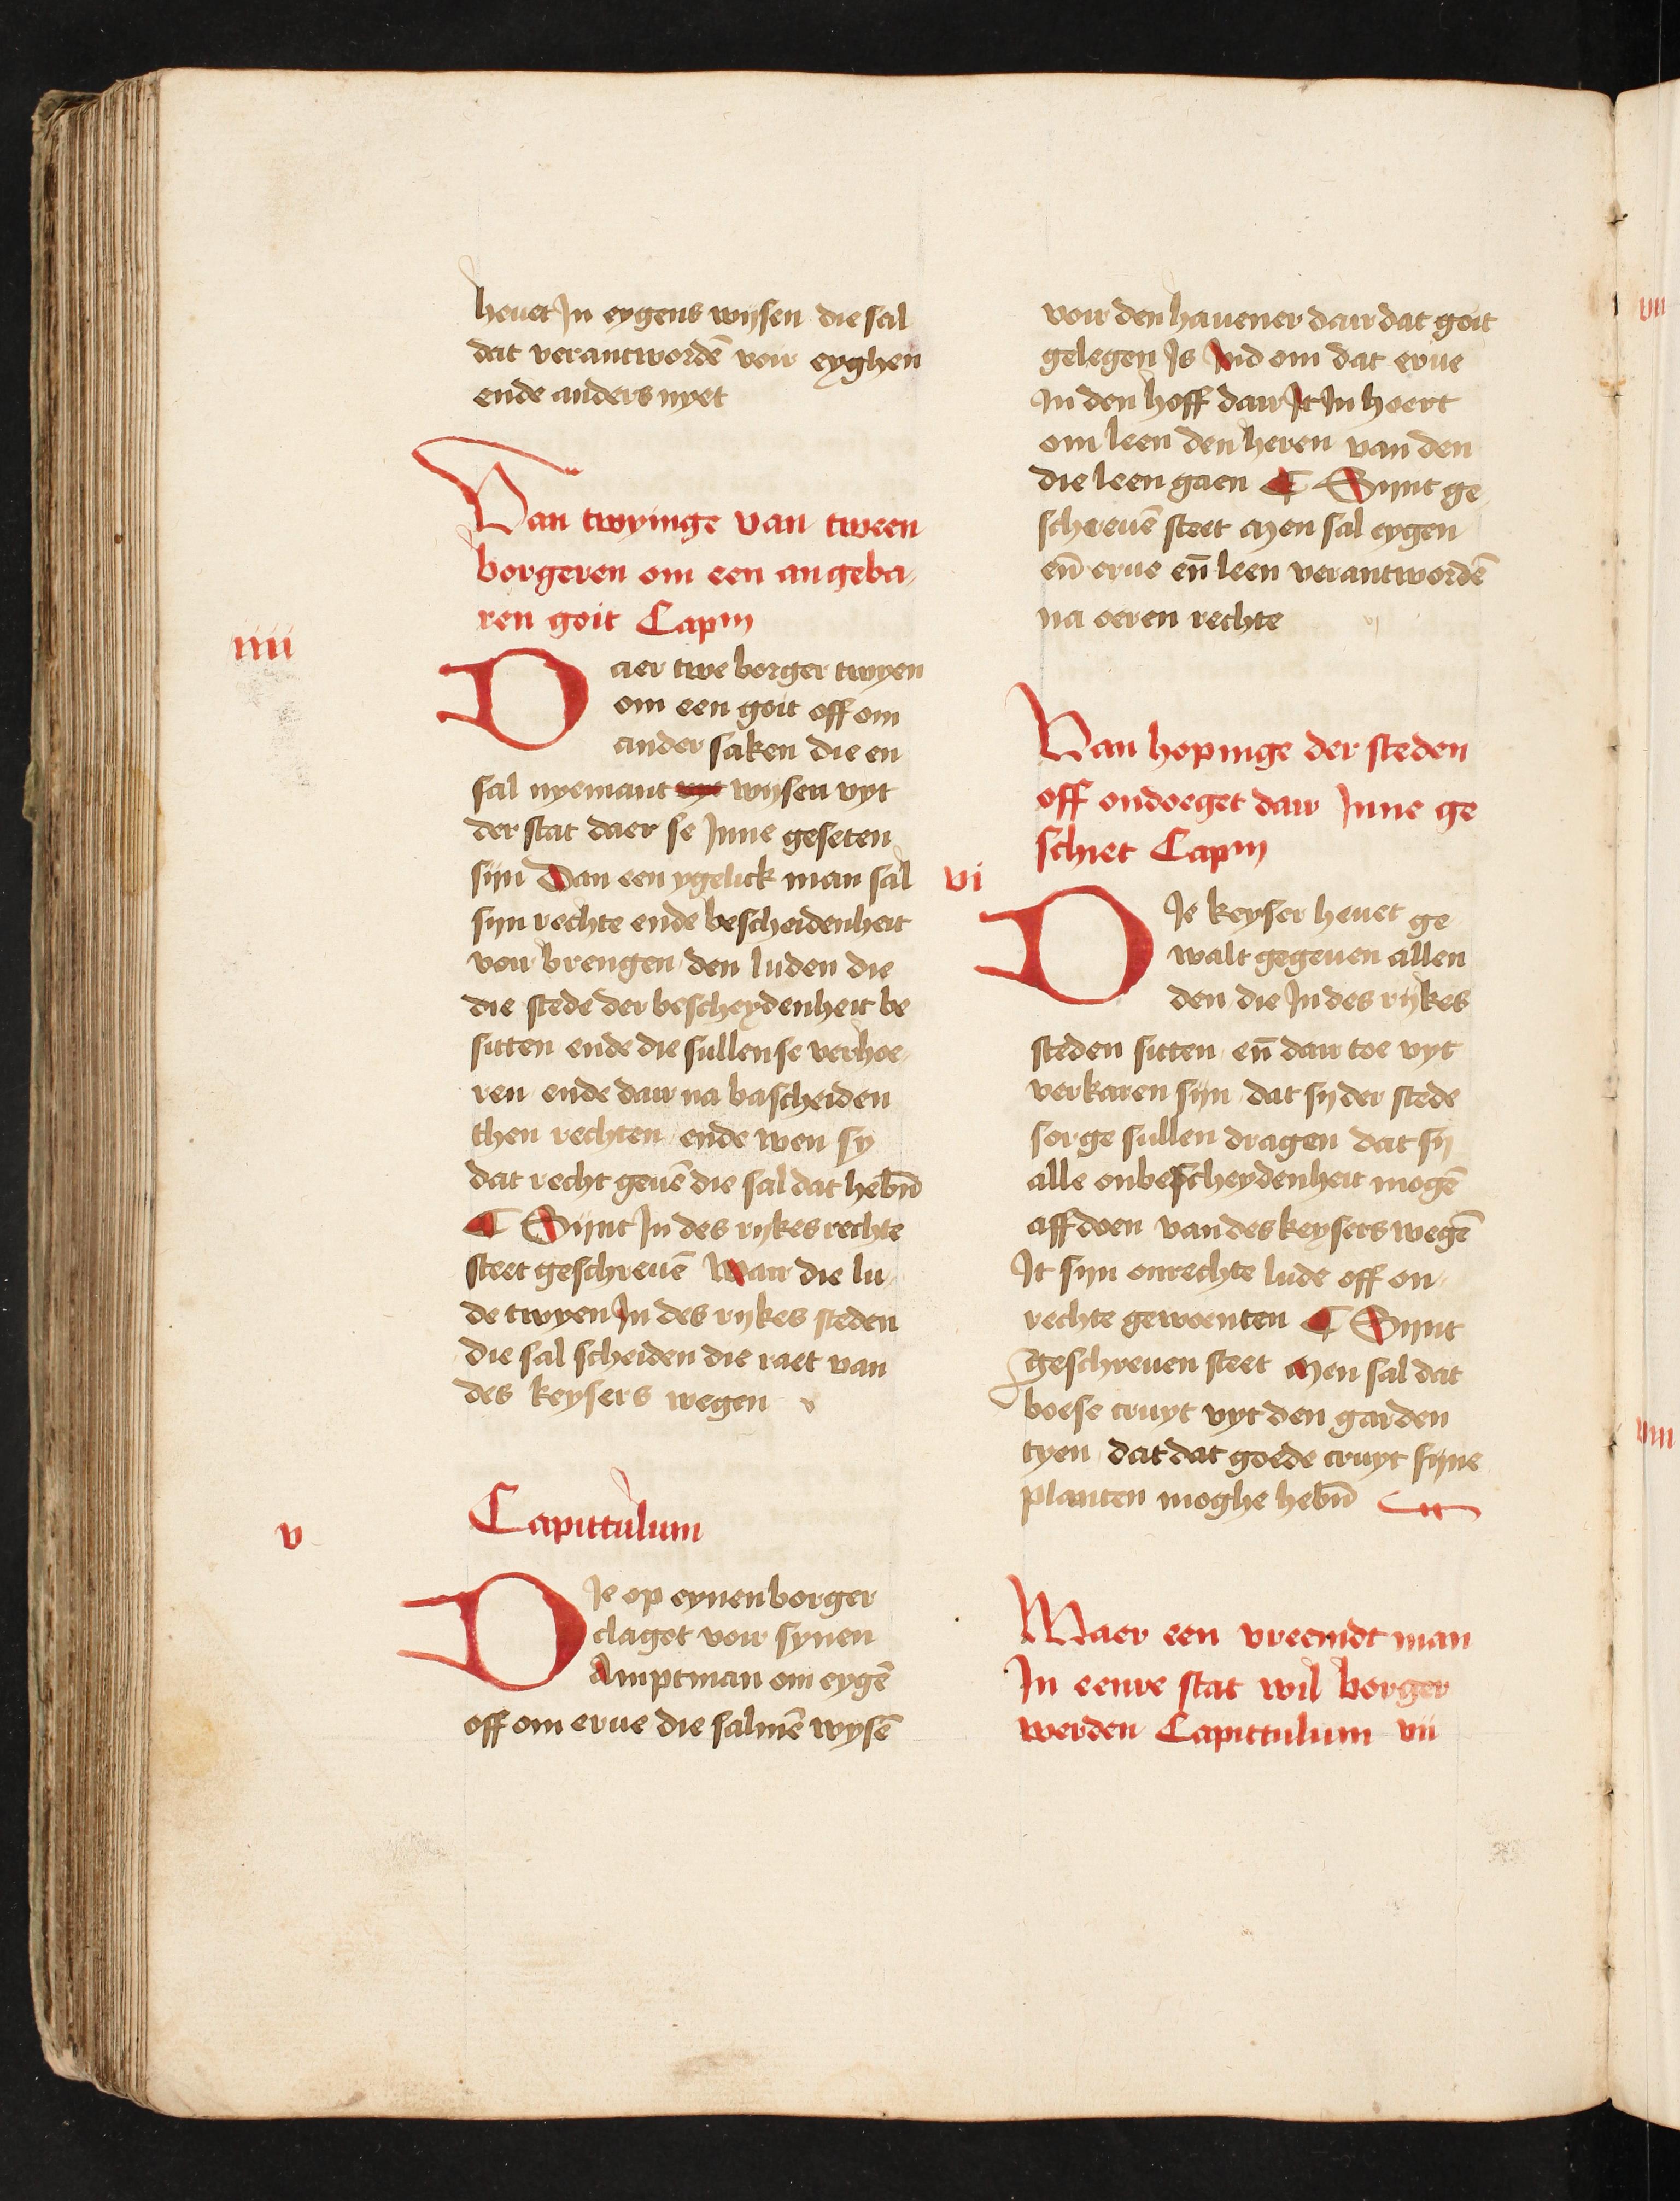 heuet In eygens wijsen die sal
dat verantwordē voir eyghen
ende anders nyet
Van twyinge van tween
borgeren om een angeba-
ren goit Capm
iiii
Daer twe borger twyen
om een goit off om
ander saken die en
sal nyemant vyt wijsen vyt
der stat daer se Inne geseten
sijn Dan een ygelick man sal
sijn rechte ende bescheidenheit
voir brengen den luden die
die stede der bescheydenheit be
sitten ende die sullen se verhoe-
ren ende dair na bascheiden
then rechten ende wen sy
dat recht geuē die sal dat hebn̄
¶ Sijnt In des rijkes rechte
steet geschreuē Wair die lu-
de twyen In des rijkes steden
die sal scheiden die raet van
des keysers wegen v
Capittulum
v
DIe op eynen borger
claget voir synen
Amptman om eygē
off om erue die salmē wysē
voir den hauener dair dat goit
gelegen Is Vnd om dat erue
In den hoff dair It In hoert
om leen den heren van den
die leen gaen ¶ Sijnt ge-
schreuē steet Men sal eygen
en̄ erue en̄ leen verantwordē
na oeren rechte vj
Van hopinge der steden
off ondoeget dair Inne ge
schiet Capm
vi
DIe keyser heuet ge-
walt gegeuen allen
den die In des rijkes
steden sitten en̄ dair toe vyt
verkaren sijn dat sy der stede
sorge sullen dragen dat sij
alle onbescheydenheit mogē
aff doen van des keysers wegē
It sijn onrechte lude off on-
rechte gewoenten ¶ Sijnt
geschreuen steet Men sal dat
boese cruyt vyt den garden
tyen dat dat goede cruyt sijne
planten moghe hebn̄
Waer een vreemdt man
In eenre stat wil borger
werden Capittulum vii
vii
viii